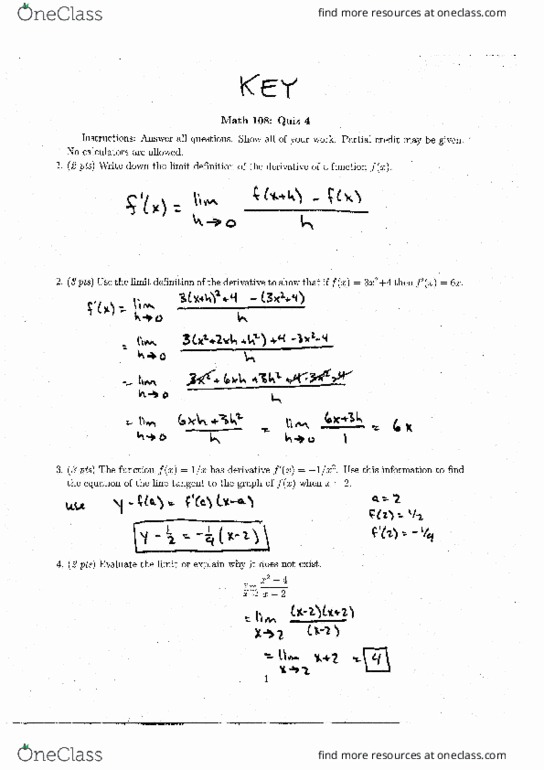 OneClass
find more resources at oneclass.com
KEY
Math 108: Quiz 4
Instructions: Answer all questions. Show all of your work. Partial credit may be given.
No calculators are allowed.
1. (2 pts) Write down the limit definition of the derivative of a function f(x).
f'(x) = lim h→0 (f(x+h) - f(x))/h
2. (3 pts) Use the limit definition of the derivative to show that if f(x) = 3x²+4 then f'(x) = 6x.
f'(x) = lim h→0 (3(x+h)²+4 - (3x²+4))/h
= lim h→0 (3(x²+2xh+h²)+4-3x²-4)/h
= lim h→0 (3x²+6xh+3h²+4-3x²-4)/h
= lim h→0 (6xh+3h²)/h = lim h→0 (6x+3h)/1 = 6x
3. (3 pts) The function f(x) = 1/x has derivative f'(x) = -1/x². Use this information to find
the equation of the line tangent to the graph of f(x) when x = 2.
use y-f(a) = f'(a)(x-a)
a=2
f(2)=1/2
f'(2)=-1/4
y-1/2 = -1/4(x-2)
4. (2 pts) Evaluate the limit or explain why it does not exist.
lim x→2 (x²-4)/(x-2)
= lim x→2 ((x-2)(x+2))/(x-2)
= lim x→2 x+2 = 4
1
OneClass
find more resources at oneclass.com